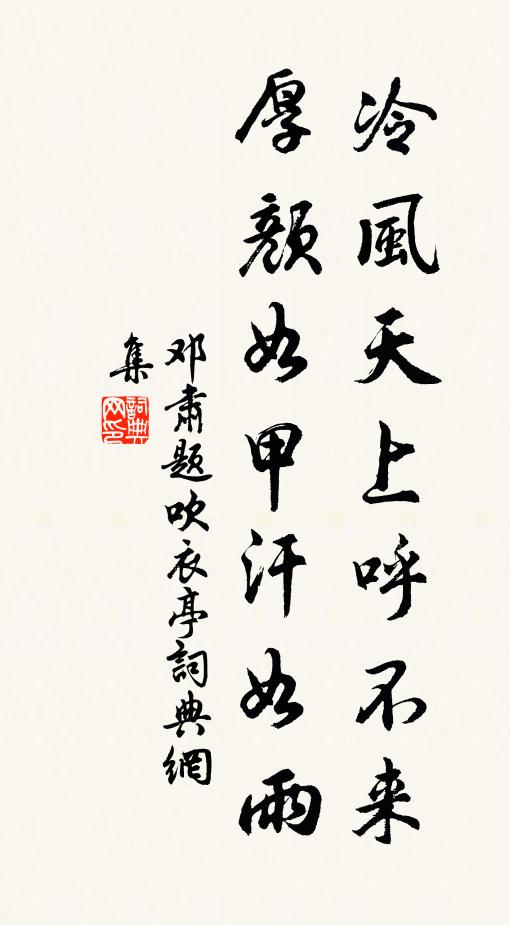 冷風天上呼不来
厚顏如甲汗如雨
邓肅題吹衣亭詞典網
集
詞典
网印